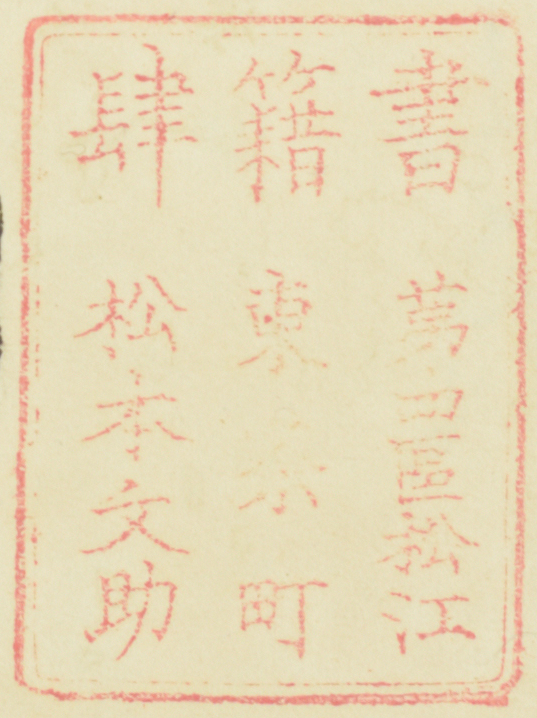 書籍肆
苐四區松江
東本町
松本文助